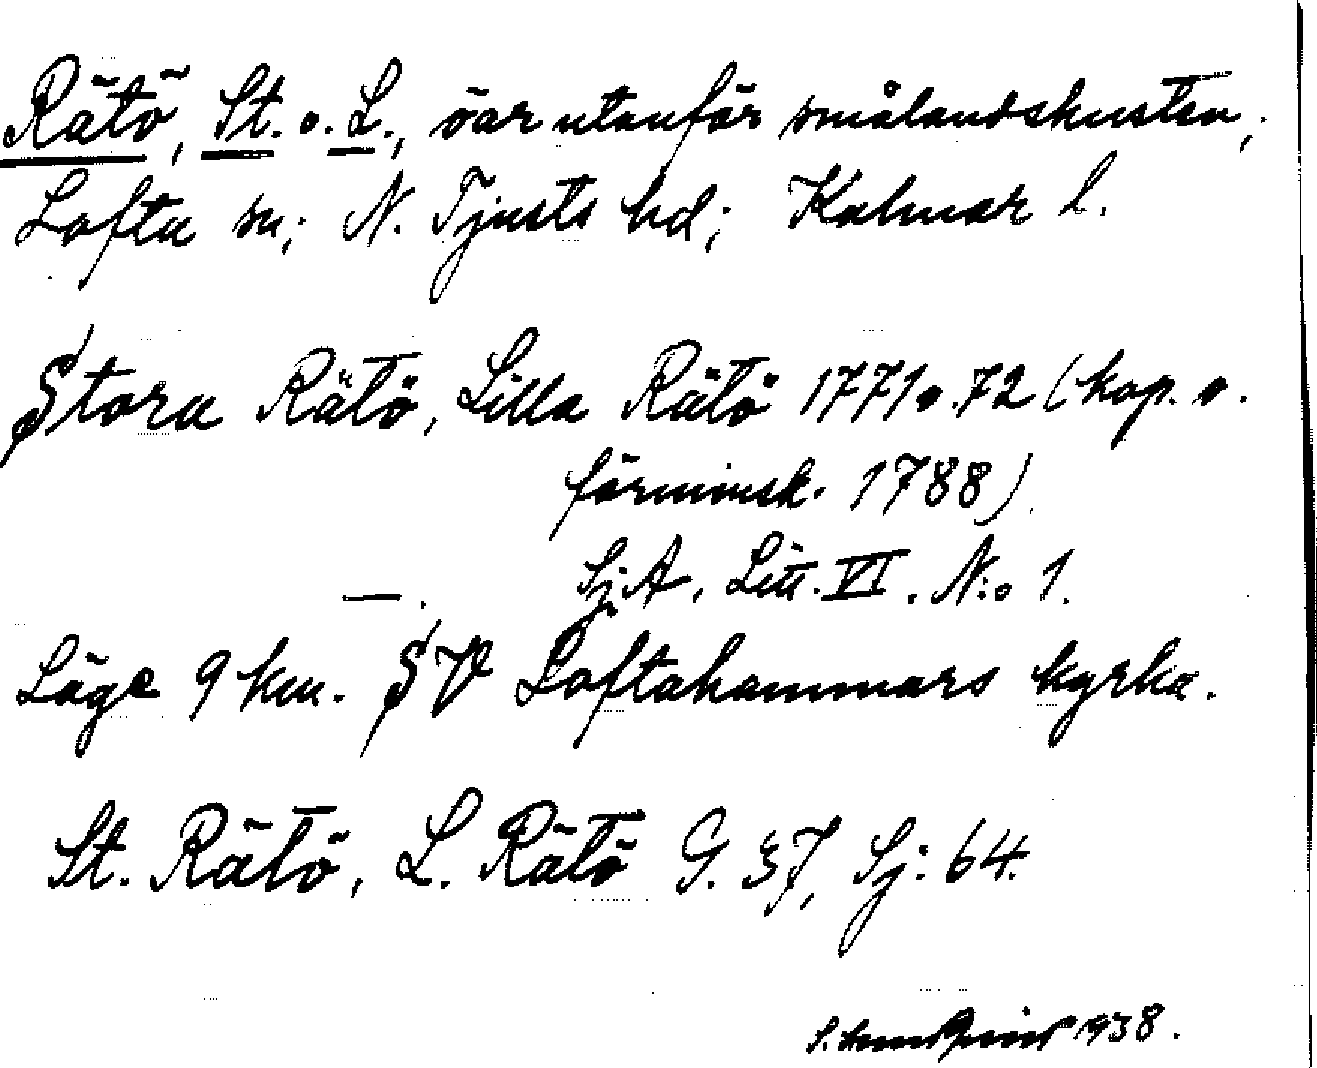 Rätö, St. o. L., öar utanför smålandskusten,
Lofta sn; N. Tjusts hd; Kalmar l.
Stora Rätö, Lilla Rätö 1771 o. 72 (kop. o.
förminsk. 1788)
—. Sj. A, Litt. VI. N:o 1.
Läge 9 km. SV Loftahammars kyrka.
St. Rätö, L. Rätö G. 37, Sj: 64.
1938.